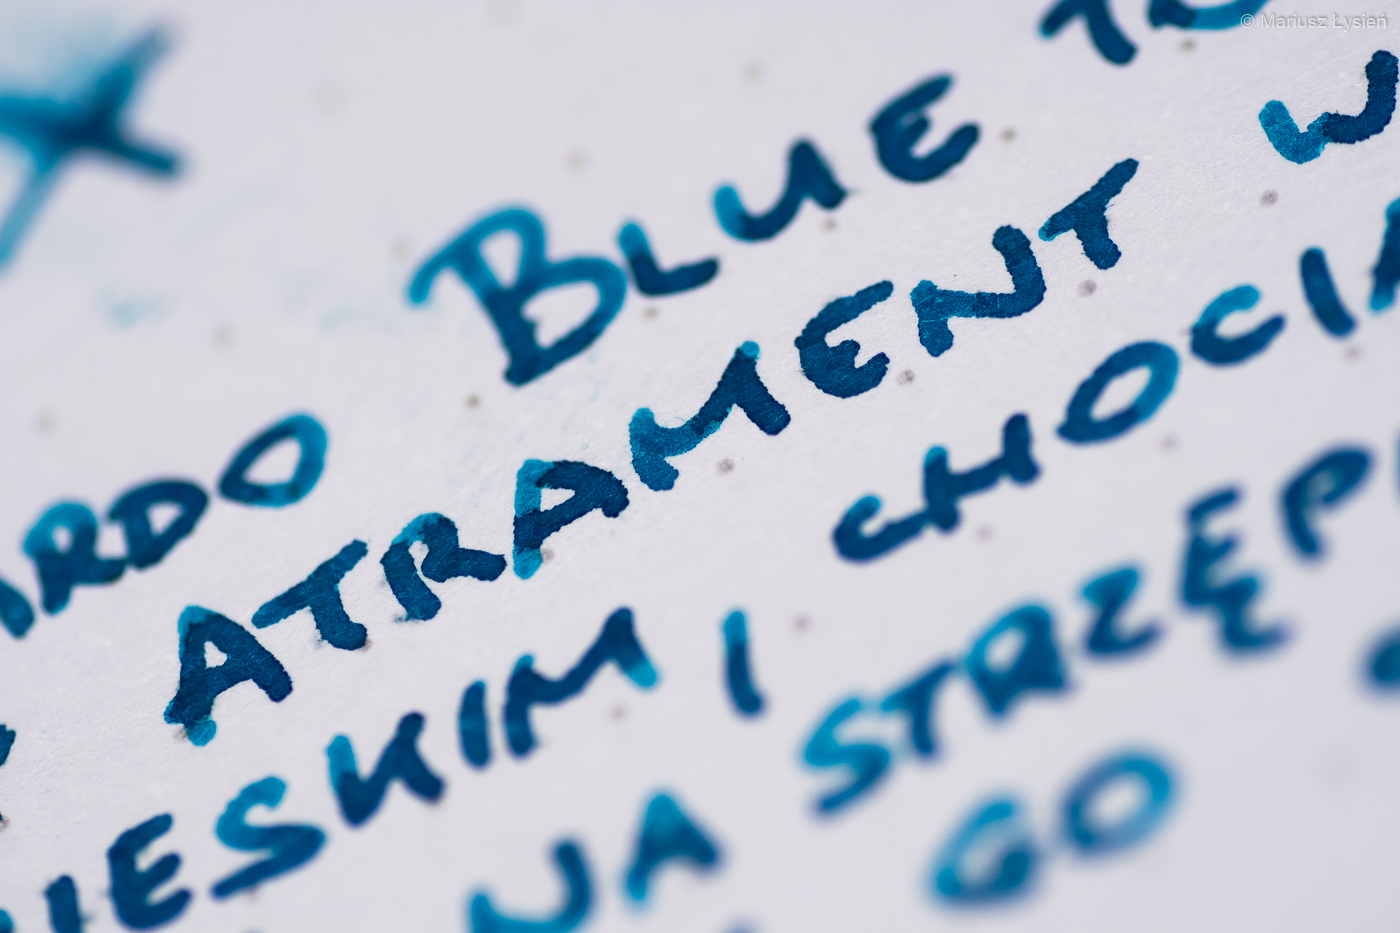 © Mariusz Łysień
X
ARDO BLUE TO
ATRAMENT W
IESKIM I CHOCIA
NA STRZEP
GO